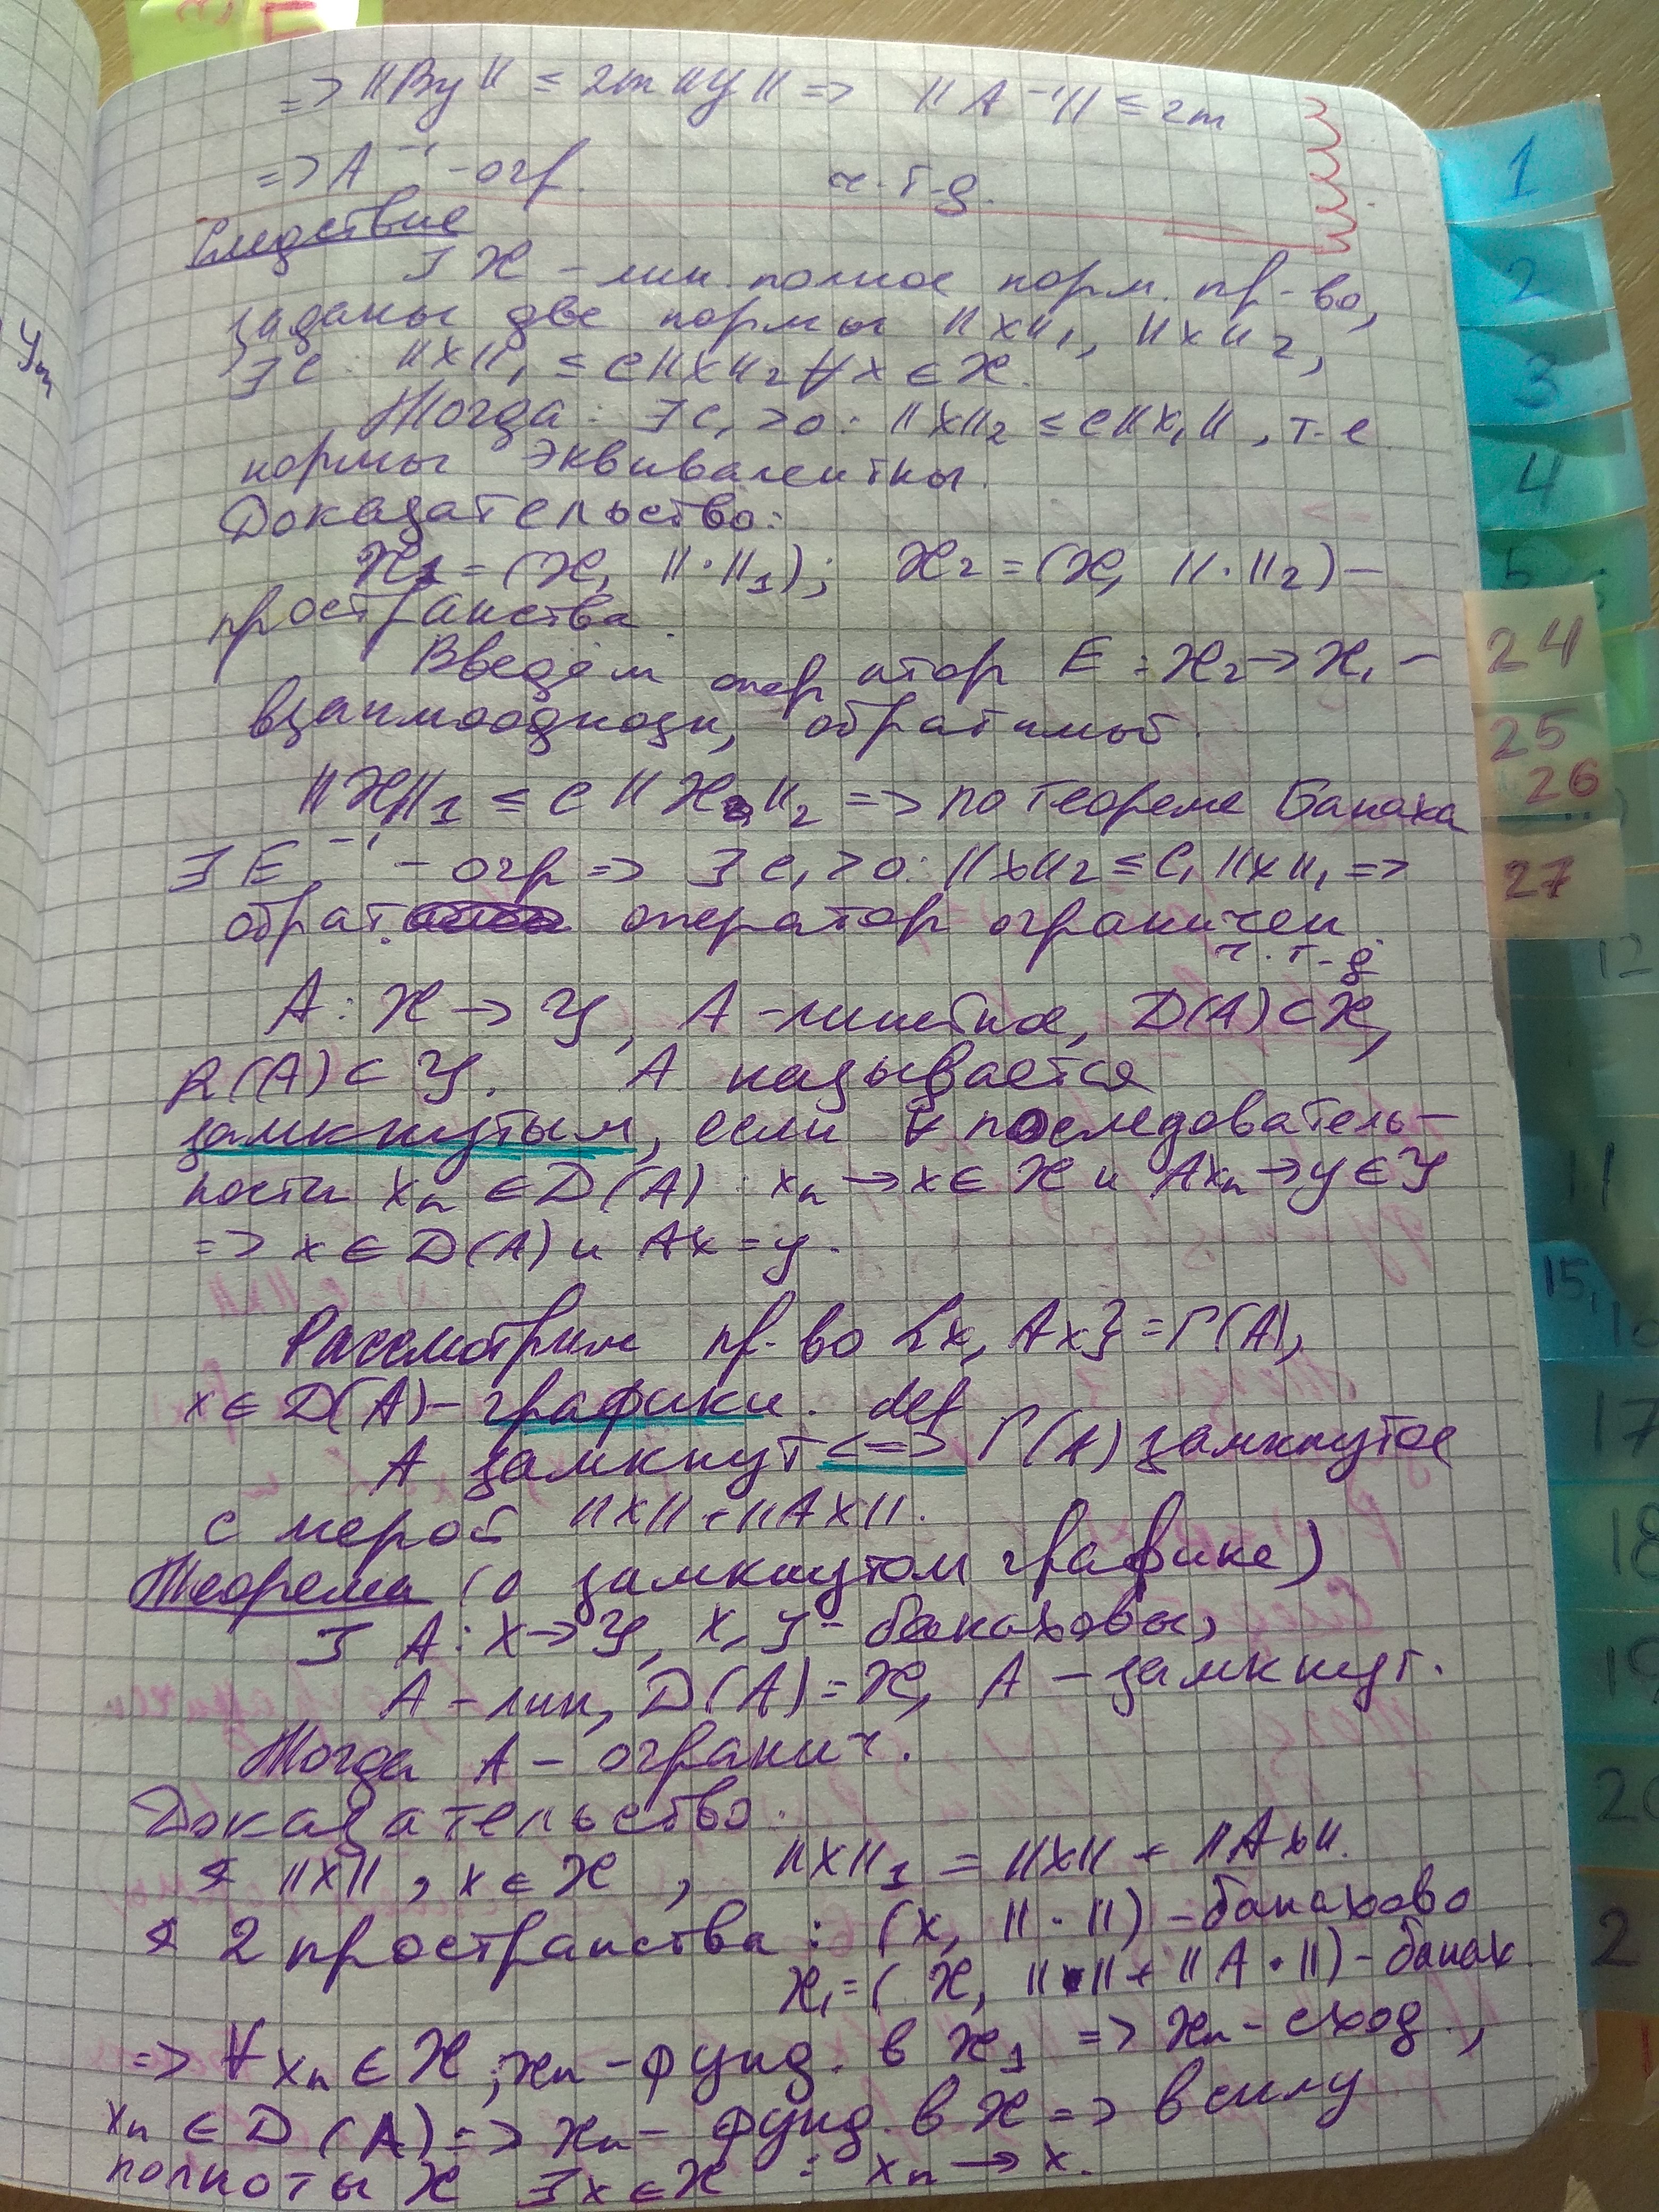 => ||By|| ≤ 2m ||y|| => ||A⁻¹|| ≤ 2m
=> A⁻¹ - огр. ч.т-д.
Следствие
∃ X - лин. полное норм. пр-во,
заданы две нормы ||x||₁, ||x||₂,
∃ c: ||x||₁ ≤ c||x||₂ ∀x ∈ X.
Тогда: ∃ c₁ > 0: ||x||₂ ≤ c||x₁||, т-е
нормы эквивалентны.
Доказательство:
X₁ = (X, ||·||₁); X₂ = (X, ||·||₂) –
пространства.
Введём оператор E : X₂ → X₁ –
взаимооднозн, обратимый.
||X||₁ ≤ c ||X₂||₂ => по теореме Банаха
∃ E⁻¹ - огр => ∃ c₁ > 0: ||x||₂ ≤ c₁ ||x||₁ =>
обрат. оператор ограничен.
ч.т-д
A : X → Y, A - линейное, D(A) ⊂ X,
R(A) ⊂ Y. A называется
замкнутым, если ∀ последователь-
ности xₙ ∈ D(A) : xₙ → x ∈ X и Axₙ → y ∈ Y
=> x ∈ D(A) и Ax = y.
Рассмотрим пр-во {x, Ax} = Г(A),
x ∈ D(A) - графики. def
A замкнут <=> Г(A) замкнутое
с мерой ||x|| + ||Ax||.
Теорема (о замкнутом графике)
∃ A : X → Y, X, Y - банаховы,
A - лин, D(A) = X, A - замкнут.
Тогда A - огранич.
Доказательство:
∢ ||x||, x ∈ X, ||x||₁ = ||x|| + ||Ax||.
∢ 2 пространства : (X, ||·||) - банахово
X₁ = (X, ||·|| + ||A·||) - банах.
=> ∀xₙ ∈ X, xₙ - фунд. в X₁ => xₙ - сход.,
xₙ ∈ D(A) => xₙ - фунд. в X => в силу
полноты X ∃x ∈ X : xₙ → x.
yₘ
1
2
3
4
5
24
25
26
27
12
11
15,
16
17
18
19
20
2